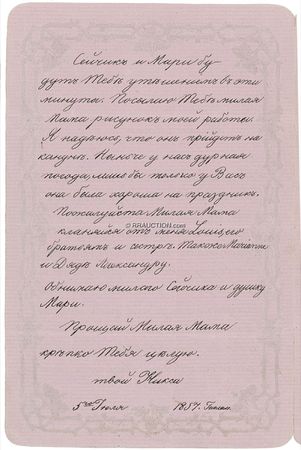 Сейчикъ и Мари бу-
дутъ Тебѣ утѣшеніемъ въ эти
минуты. Посылаю Тебѣ милая
Мама рисунокъ моей работы.
Я надѣюсь, что онъ прійдетъ на
канунѣ. Нынче у насъ дурная
погода, лишь бы только у Васъ
она была хороша на праздникъ.
© RRAUCTION.com
Пожалуйста Милая Мама
кланяйся отъ меня Louis, его
братьямъ и сестрѣ. Также
и Дядѣ Александру.
Обнимаю милого Сейчика и душку
Мари.
Прощай Милая Мама
крѣпко Тебя цѣлую.
твой Никси
5го Іюля 1857.